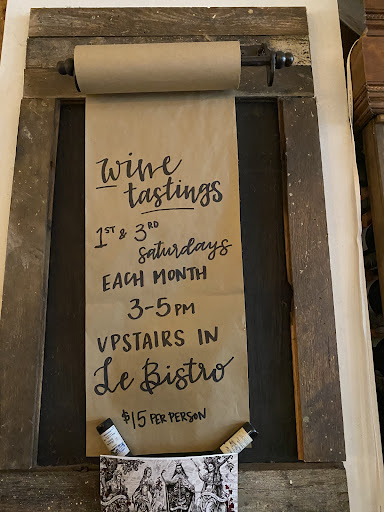 wine
tastings
1ST & 3RD
saturdays
EACH MONTH
3-5 PM
UPSTAIRS IN
Le Bistro
$15 PER PERSON